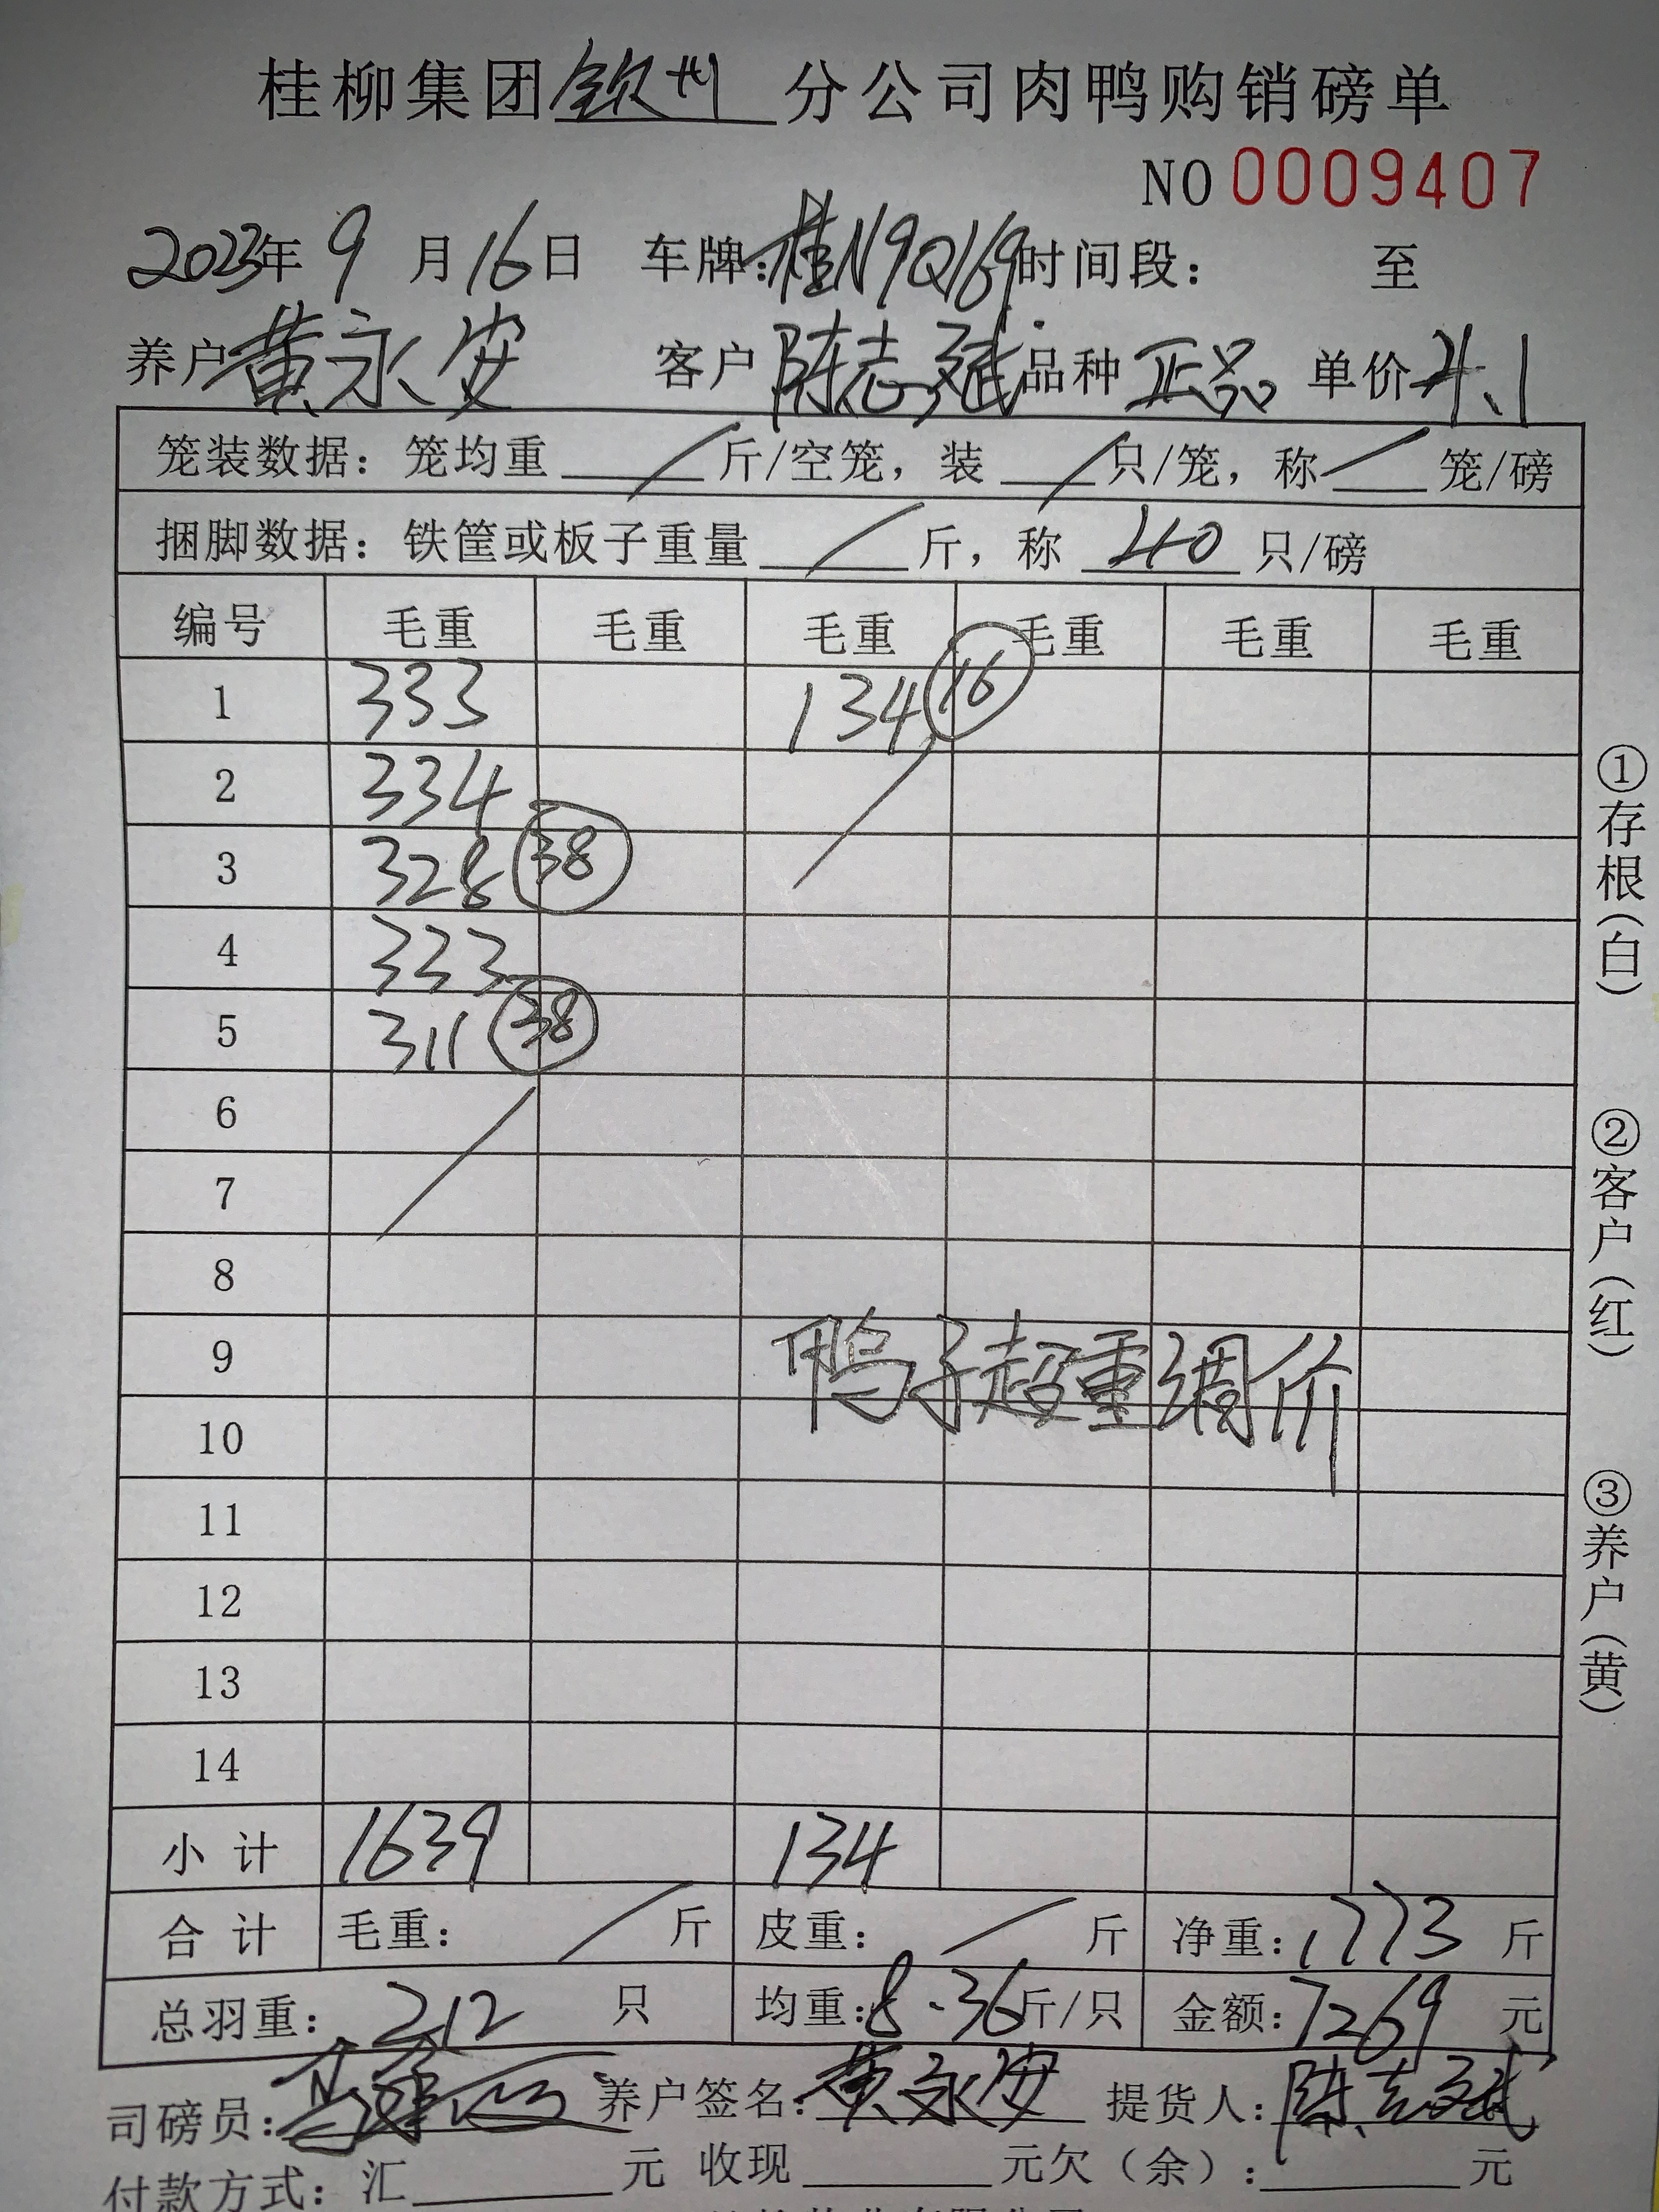 桂柳集团钦州分公司肉鸭购销磅单
NO 0009407
2023年 9 月 16 日 车牌：桂N9Q169 时间段： 至
养户 黄永安 客户 陈志斌 品种 正品 单价 4.1
笼装数据：笼均重 / 斤/空笼，装 / 只/笼，称 / 笼/磅
捆脚数据：铁筐或板子重量 / 斤，称 40 只/磅
编号 毛重 毛重 毛重 毛重 毛重 毛重
1 333 134 16
2 334
3 328 38
4 333
5 311 38
6
7
8
9 鸭子超重调价
10
11
12
13
14
小计 1639 134
合计 毛重： / 斤 皮重： / 斤 净重：1773 斤
总羽重：212 只 均重：8.36斤/只 金额：7269 元
司磅员： 养户签名：黄永安 提货人：陈志斌
付款方式：汇 元 收现 元欠（余）： 元
①存根（白）
②客户（红）
③养户（黄）